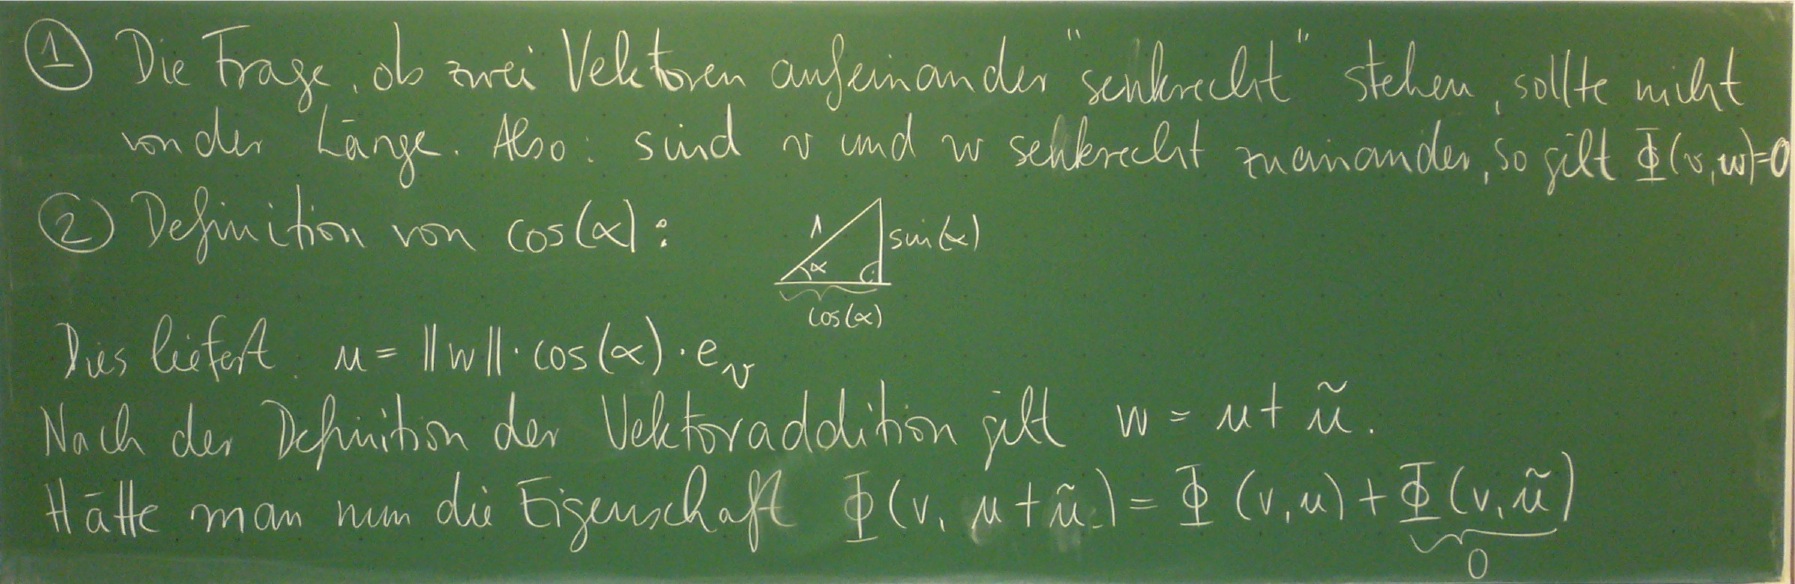 ① Die Frage, ob zwei Vektoren aufeinander "senkrecht" stehen, sollte nicht
von der Länge. Also: sind v und w senkrecht zueinander, so gilt Φ(v,w)=0
② Definition von cos(α):
1
sin(α)
α
cos(α)
Dies liefert. u = ||w|| · cos(α) · e_v
Nach der Definition der Vektoraddition gilt w = u + ũ.
Hätte man nun die Eigenschaft Φ(v, u + ũ) = Φ(v,u) + Φ(v,ũ)
0